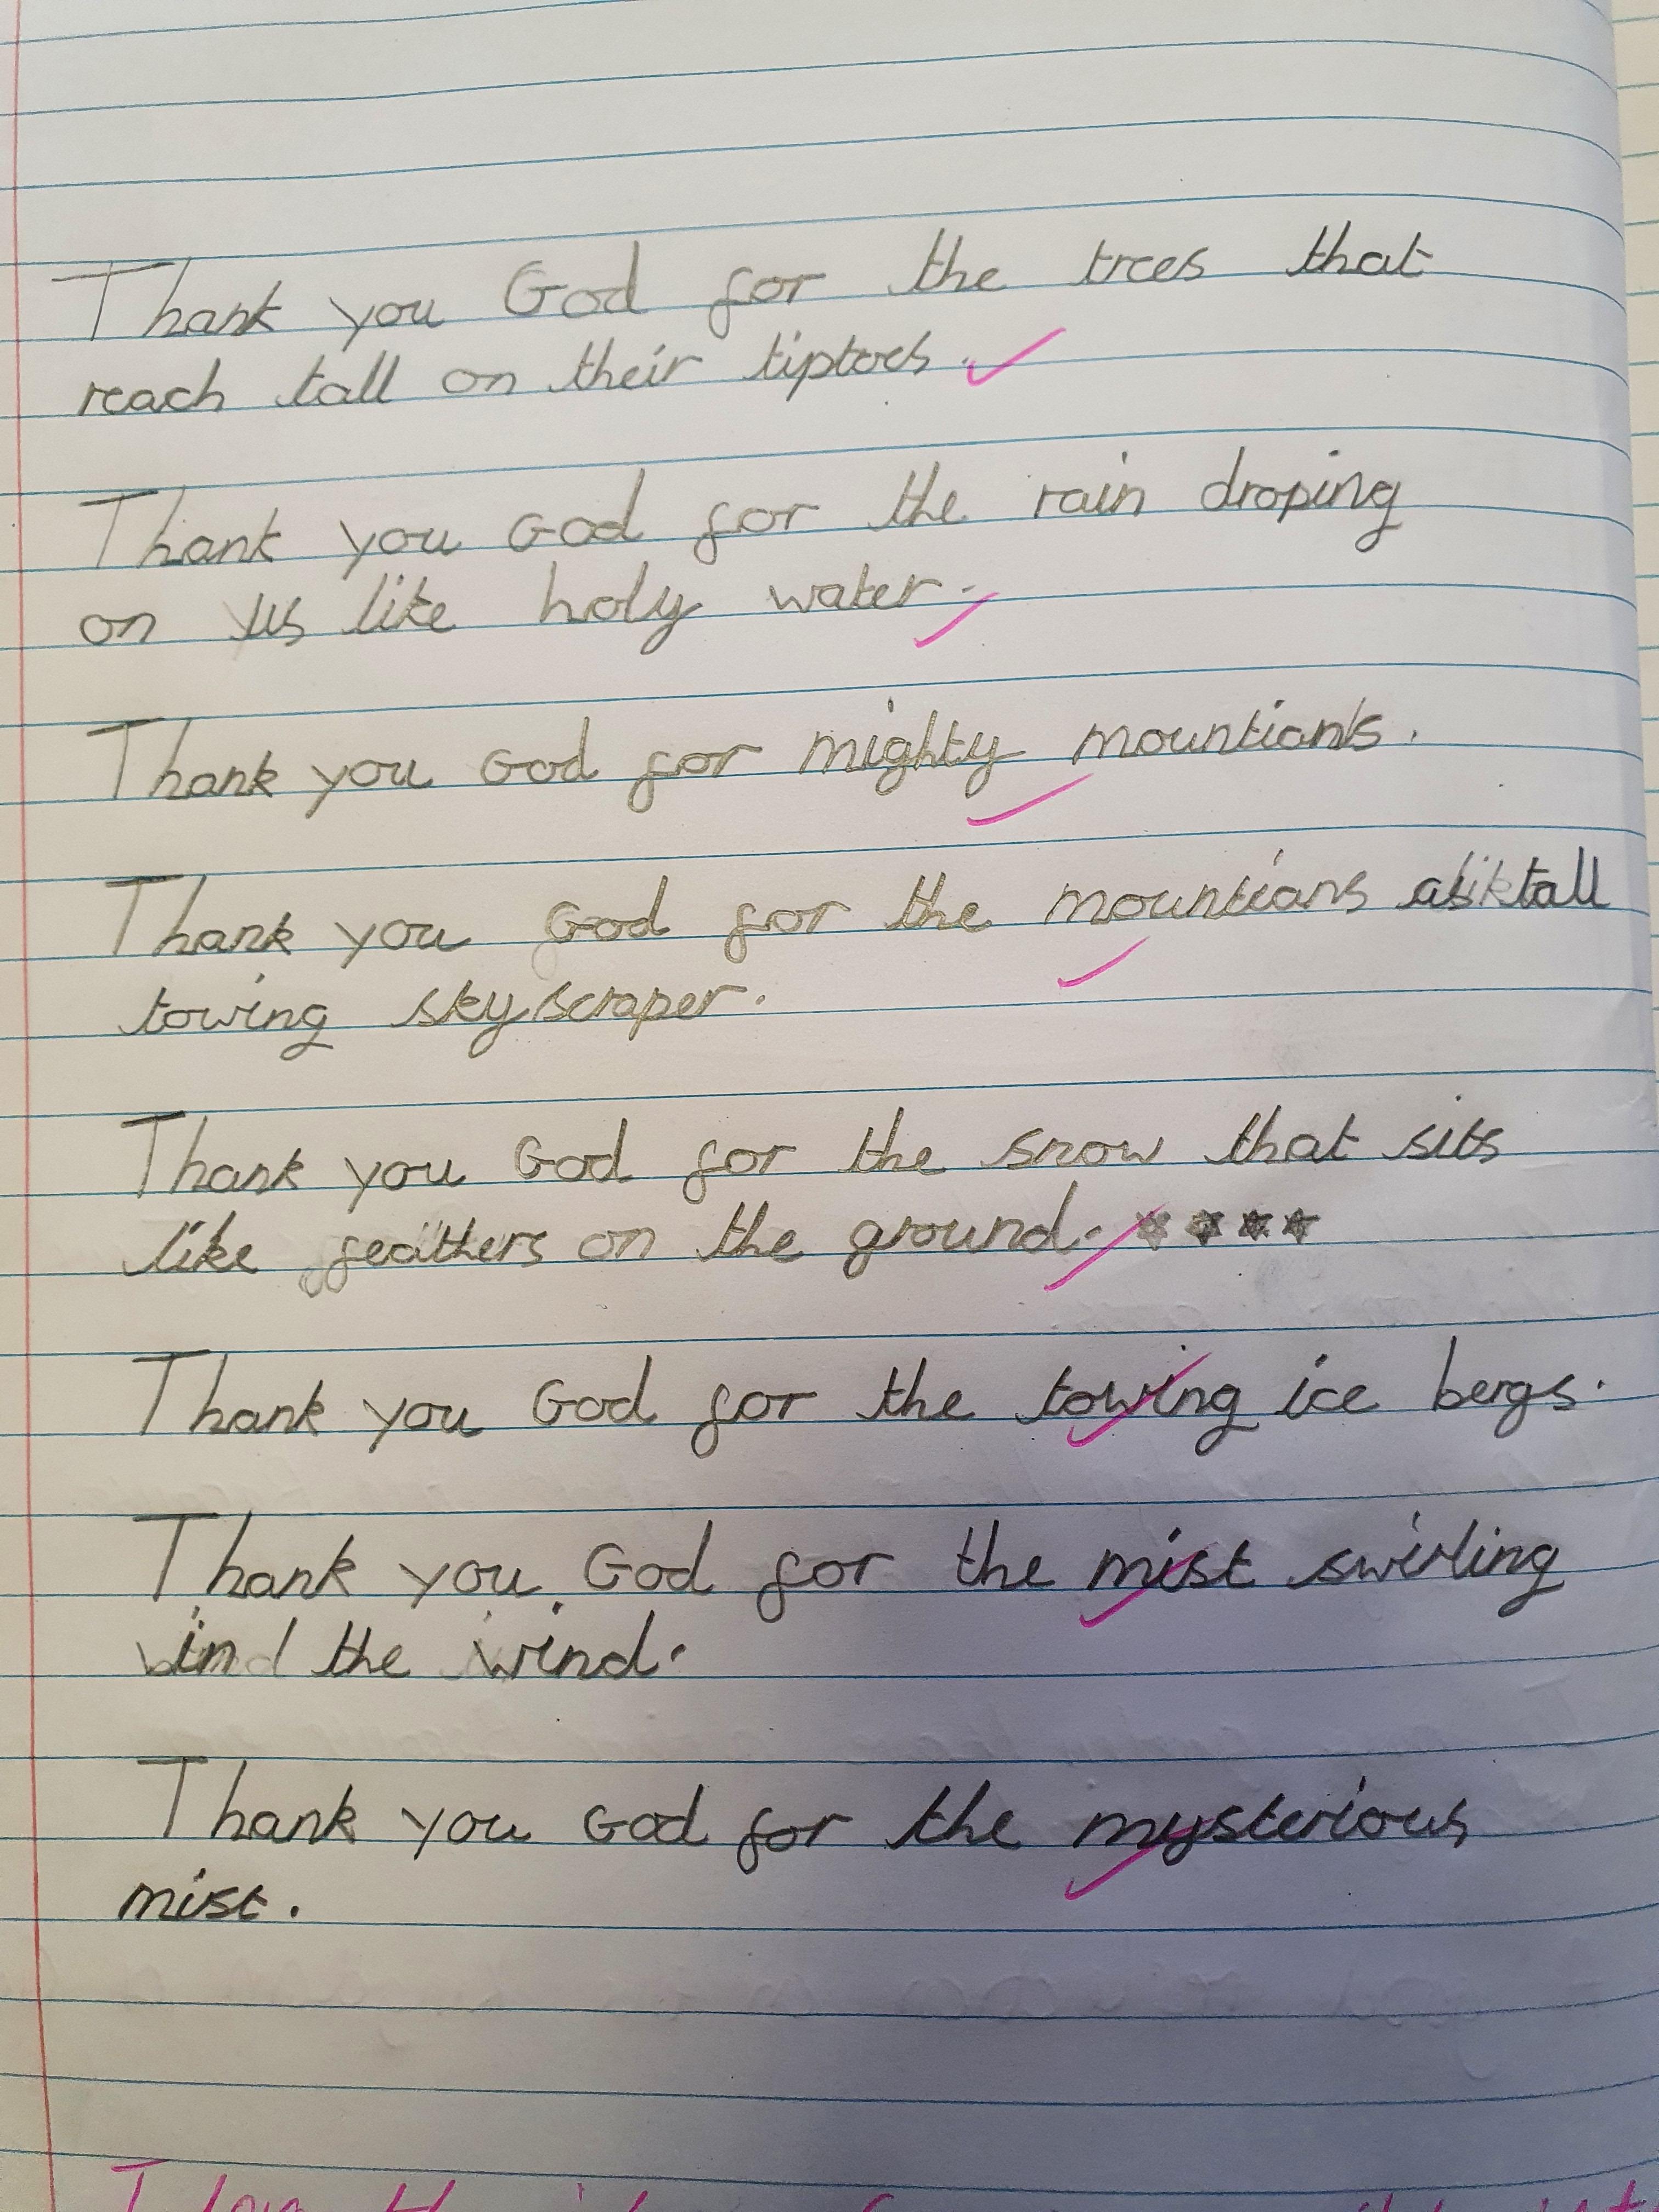 Thank you God for the trees that
reach tall on their tiptoes.
Thank you God for the rain droping
on us like holy water.
Thank you God for mighty mountians.
Thank you God for the mountians as tall
towing skyscraper.
Thank you God for the snow that sits
like feathers on the ground.
Thank you God for the towing ice bergs.
Thank you God for the mist swirling
in the wind.
Thank you God for the mysterious
mist.